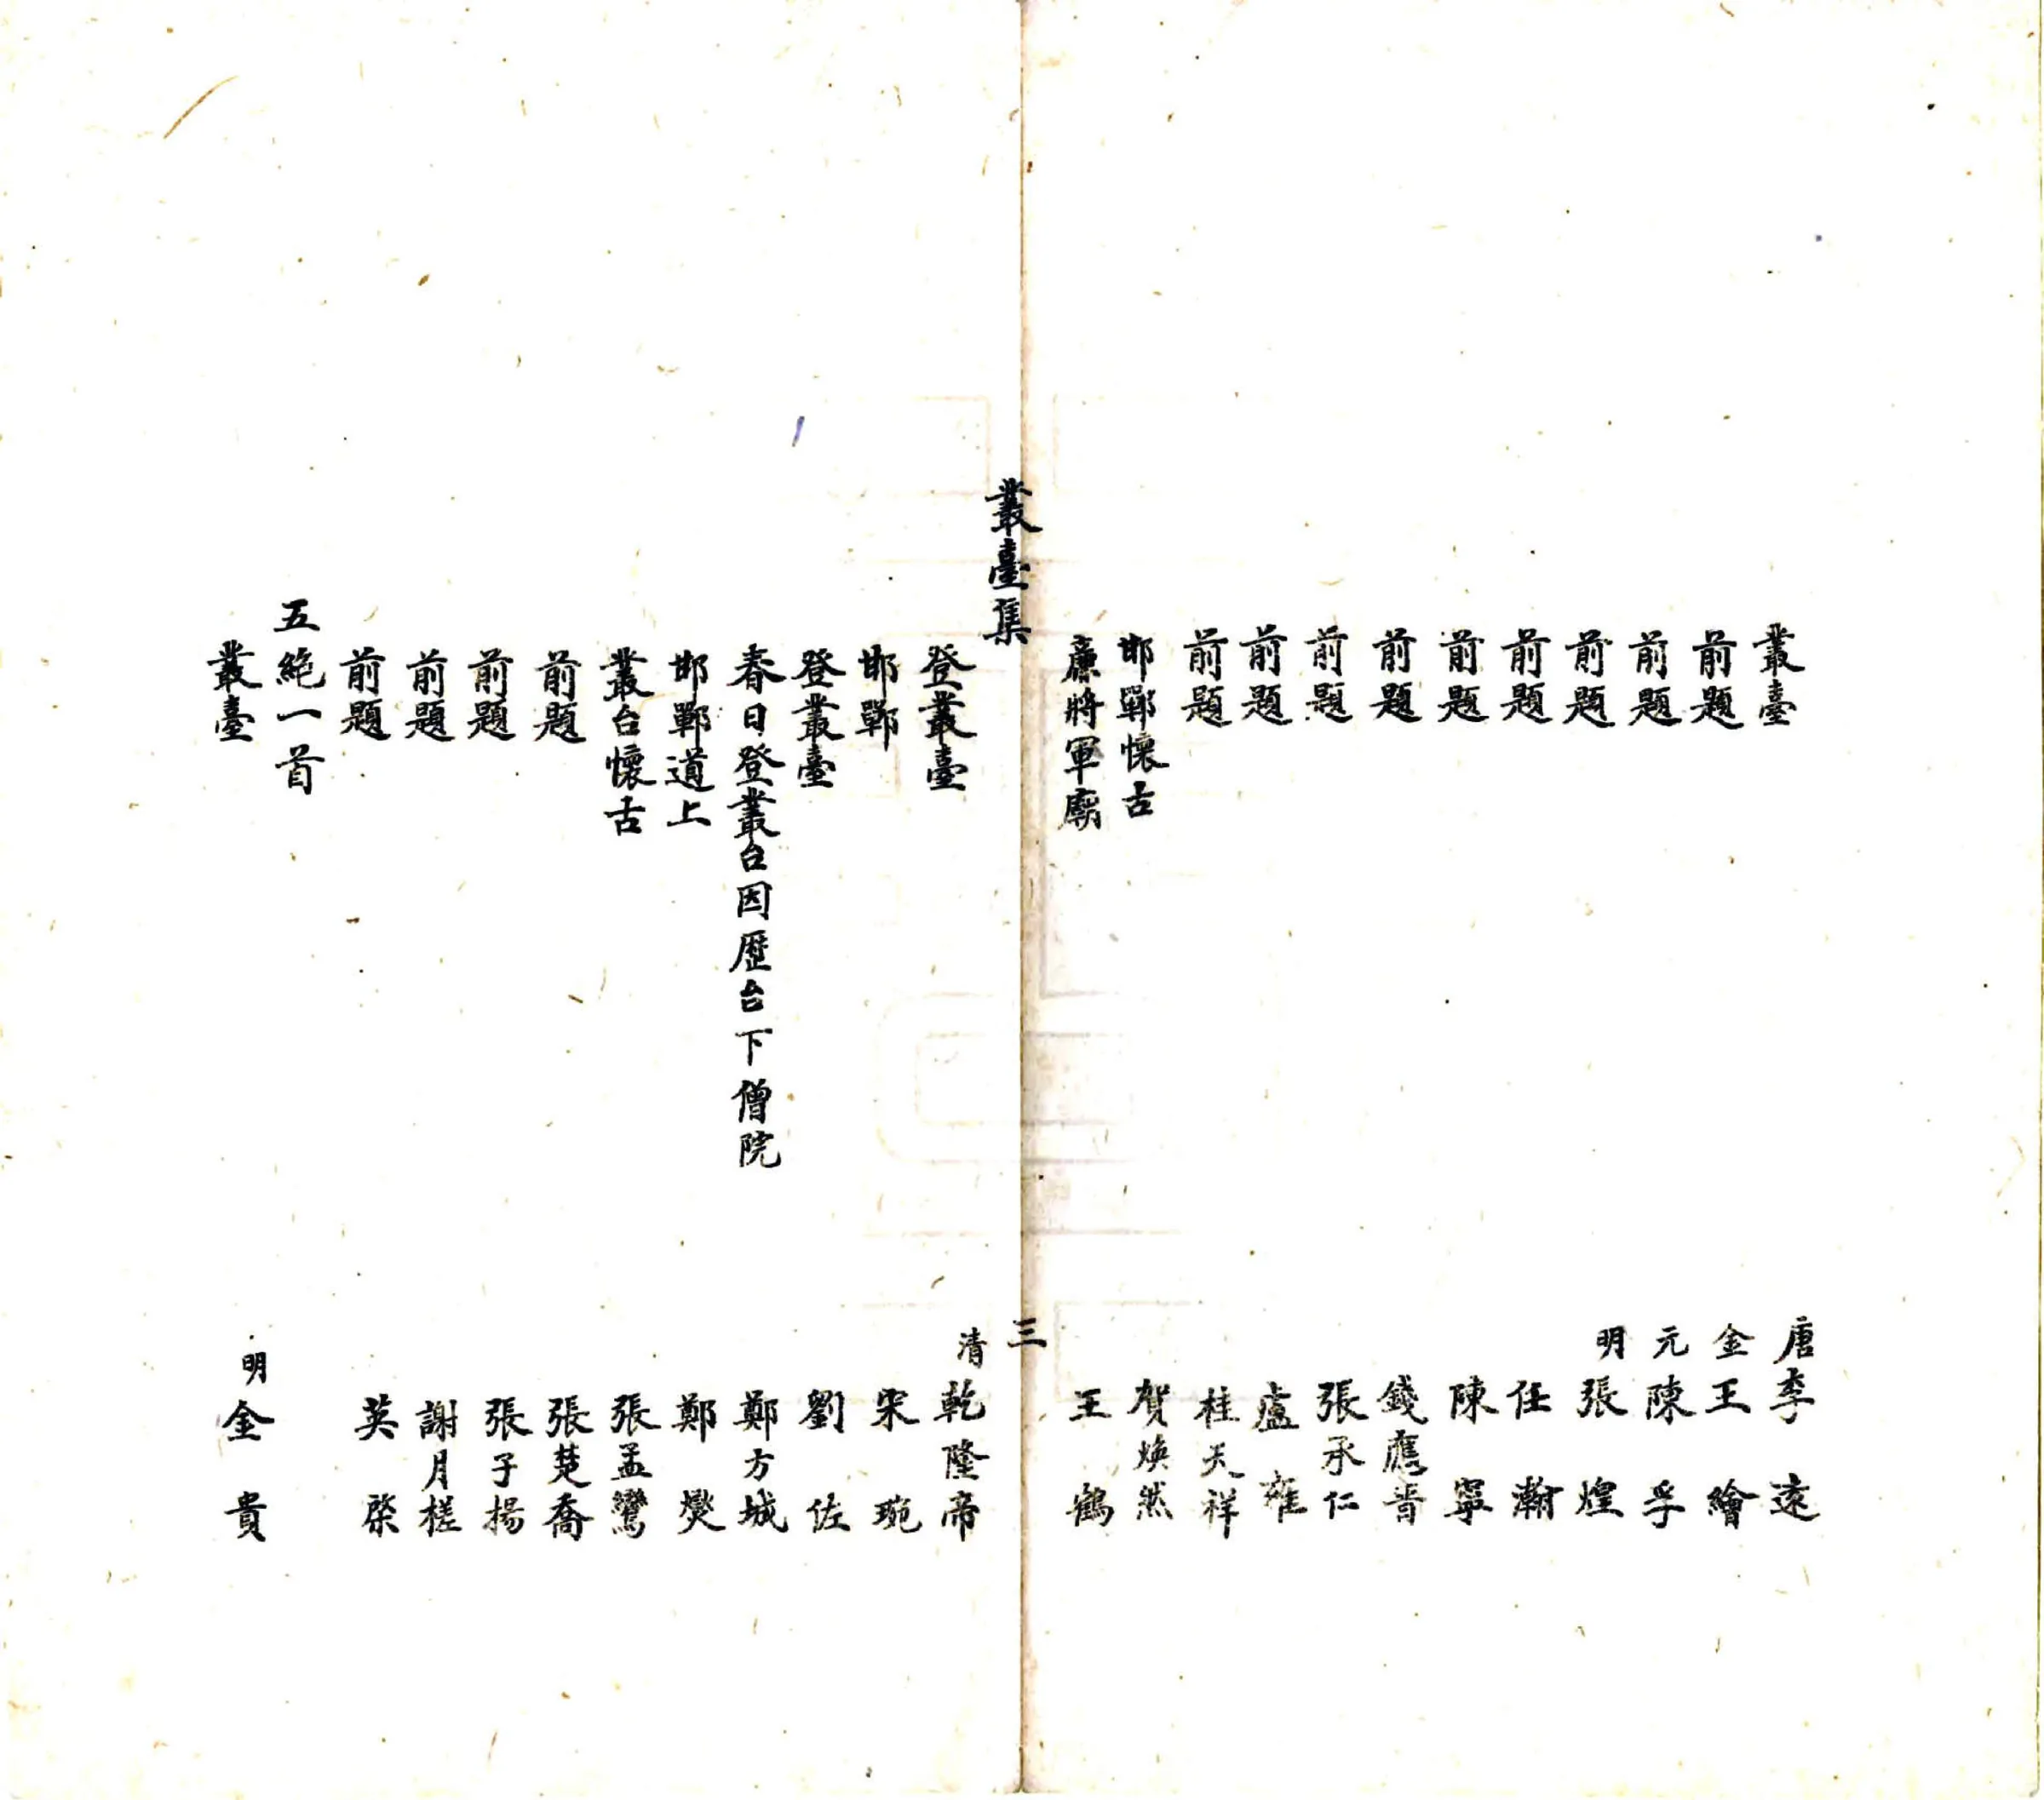 叢臺　唐李遠
前題　金王繪
前題　元陳孚
前題　明張煌
前題　任瀚
前題　陳寧
前題　錢應晋
前題　張承仁
前題　盧雍
前題　桂天祥
邯鄲懷古　賀煥然
廉將軍廟　王鶴
叢臺集　三
登叢臺　清乾隆帝
邯鄲　宋琬
登叢臺　劉佐
春日登叢台因歷台下僧院　鄭方城
邯鄲道上　鄭燮
叢台懷古　張孟鸞
前題　張楚喬
前題　張子揚
前題　謝月槎
前題　英棨
五絕一首
叢臺　明金貴